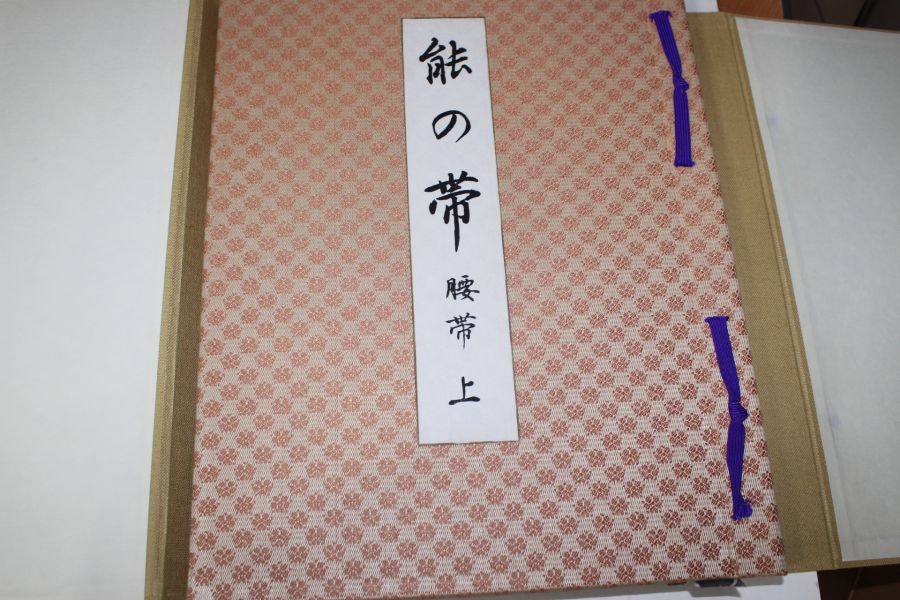 能の帯 腰帯 上